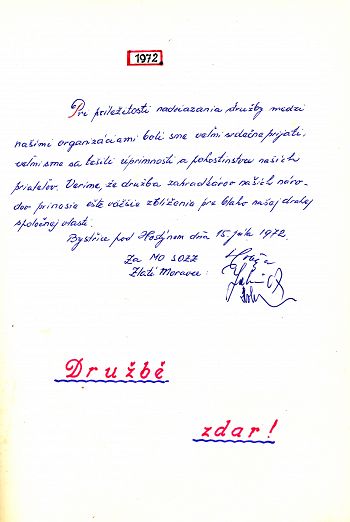 1972
Pri príležitosti nadviazania družby medzi
našimi organizáciami boli sme veľmi srdečne prijatí,
veľmi sme sa tešili úprimnosti a pohostinstvu našich
priateľov. Veríme, že družba zahradkárov našich náro-
dov prinesie ešte väčšie zblíženie pre blaho našej drahej
spoločnej vlasti.
Bystřice pod Hostýnom dňa 15. júla 1972.
Za MO SOZZ
Zlaté Moravce:
Družbě
zdar!